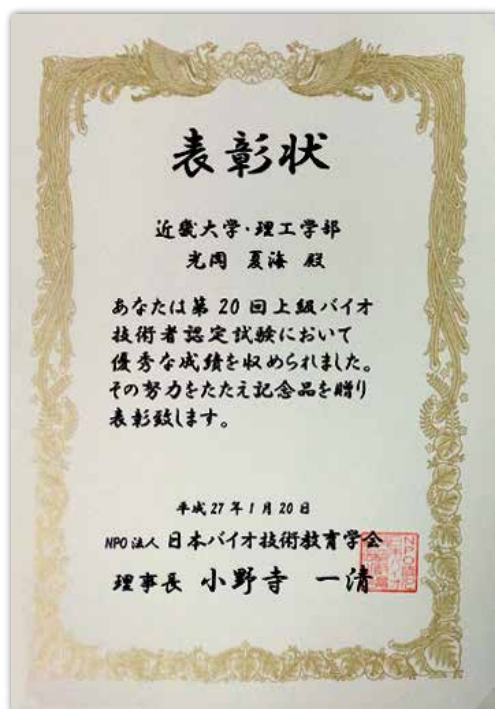 表彰状
近畿大学・理工学部
光岡 夏海 殿
あなたは第20回上級バイオ
技術者認定試験において
優秀な成績を収められました。
その努力をたたえ記念品を贈り
表彰致します。
平成27年1月20日
NPO法人 日本バイオ技術教育学会
理事長 小野寺 一清